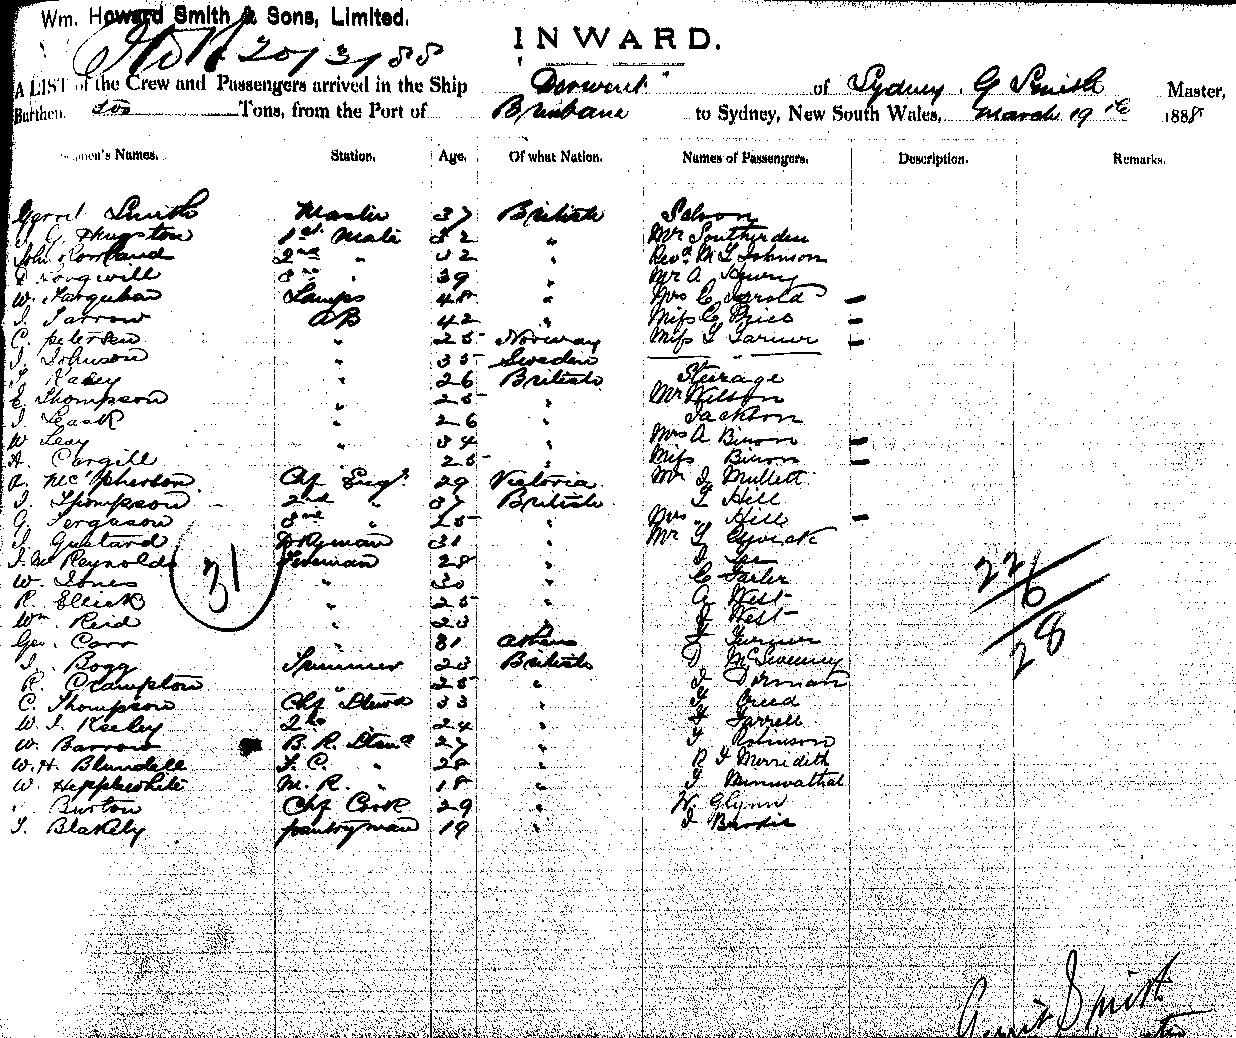 Wm. Howard Smith & Sons, Limited.
20/3/88
INWARD.
A LIST of the Crew and Passengers arrived in the Ship "Derwent" of Sydney, G Smith Master,
Burthen Tons, from the Port of Brisbane to Sydney, New South Wales, March 19th 1888
Names. Station. Age. Of what Nation. Names of Passengers. Description. Remarks.
Smith Master 37 British Saloon
Hugston 1st Mate 32 " Mr Southerden
John Rowland 2nd " 32 " Revd. M L Johnson
3rd " 39 " Mr A
W. Farquhar Lamps 48 " Mrs C Jarold –
J. Farrow AB 42 " Miss C Price –
C. Petersen " 25 Norway Miss L Farmer –
J. Johnson " 35 Sweden
Kasey " 26 British Steerage
E. Thompson " 25 " Mr Wilson
J. Leask " 26 " Jackson
W Levy " 34 " Mrs A Biron –
A. Cargill " 25 " Miss Biron –
McPherson Chf Engr. 29 Victoria Mr J Mullett
J. Thompson 2nd " 37 British Hill
G. Ferguson 3rd " 25 " Mrs " Hill –
J. Gustard Dkyman 31 " Mr
J. McReynolds Fireman 28 " J Lee
W. Jones " 30 " C
R. Ellick " 25 " A West
Wm. Reid " 23 " J West
Geo. Carr " 31 Athens
J. Bogg Trimmer 23 British D McSweeney
R. Crampton " 25 " J Dorman
C. Thompson Chf Stewd 33 " Creed
W. J. Keeley 2nd " 24 " Farrell
W. Barrow B. R. Stewd 27 " Robinson
W. H. Blundell F. C. " 28 " R J Merridith
W Hepplewhite M. R. " 18 "
Burton Chf Cook 29 " W. Glynn
J. Blakely pantryman 19 " J
31
22
6
28
Smith